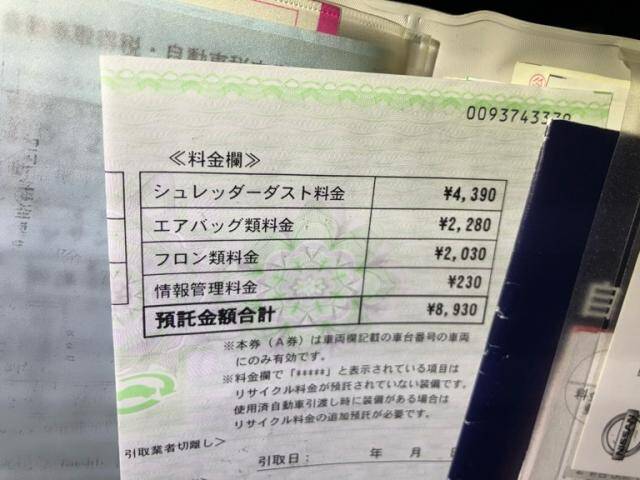 自動車
0093743330
≪料金欄≫
シュレッダーダスト料金 ¥4,390
エアバッグ類料金 ¥2,280
フロン類料金 ¥2,030
情報管理料金 ¥230
預託金額合計 ¥8,930
※本券(A券)は車両欄記載の車台番号の車両
にのみ有効です。
※料金欄で「*****」と表示されている項目は
リサイクル料金が預託されていない装備です。
使用済自動車引渡し時に装備がある場合は
リサイクル料金の追加預託が必要です。
引取業者切離し>
引取日: 年 月
NISSAN